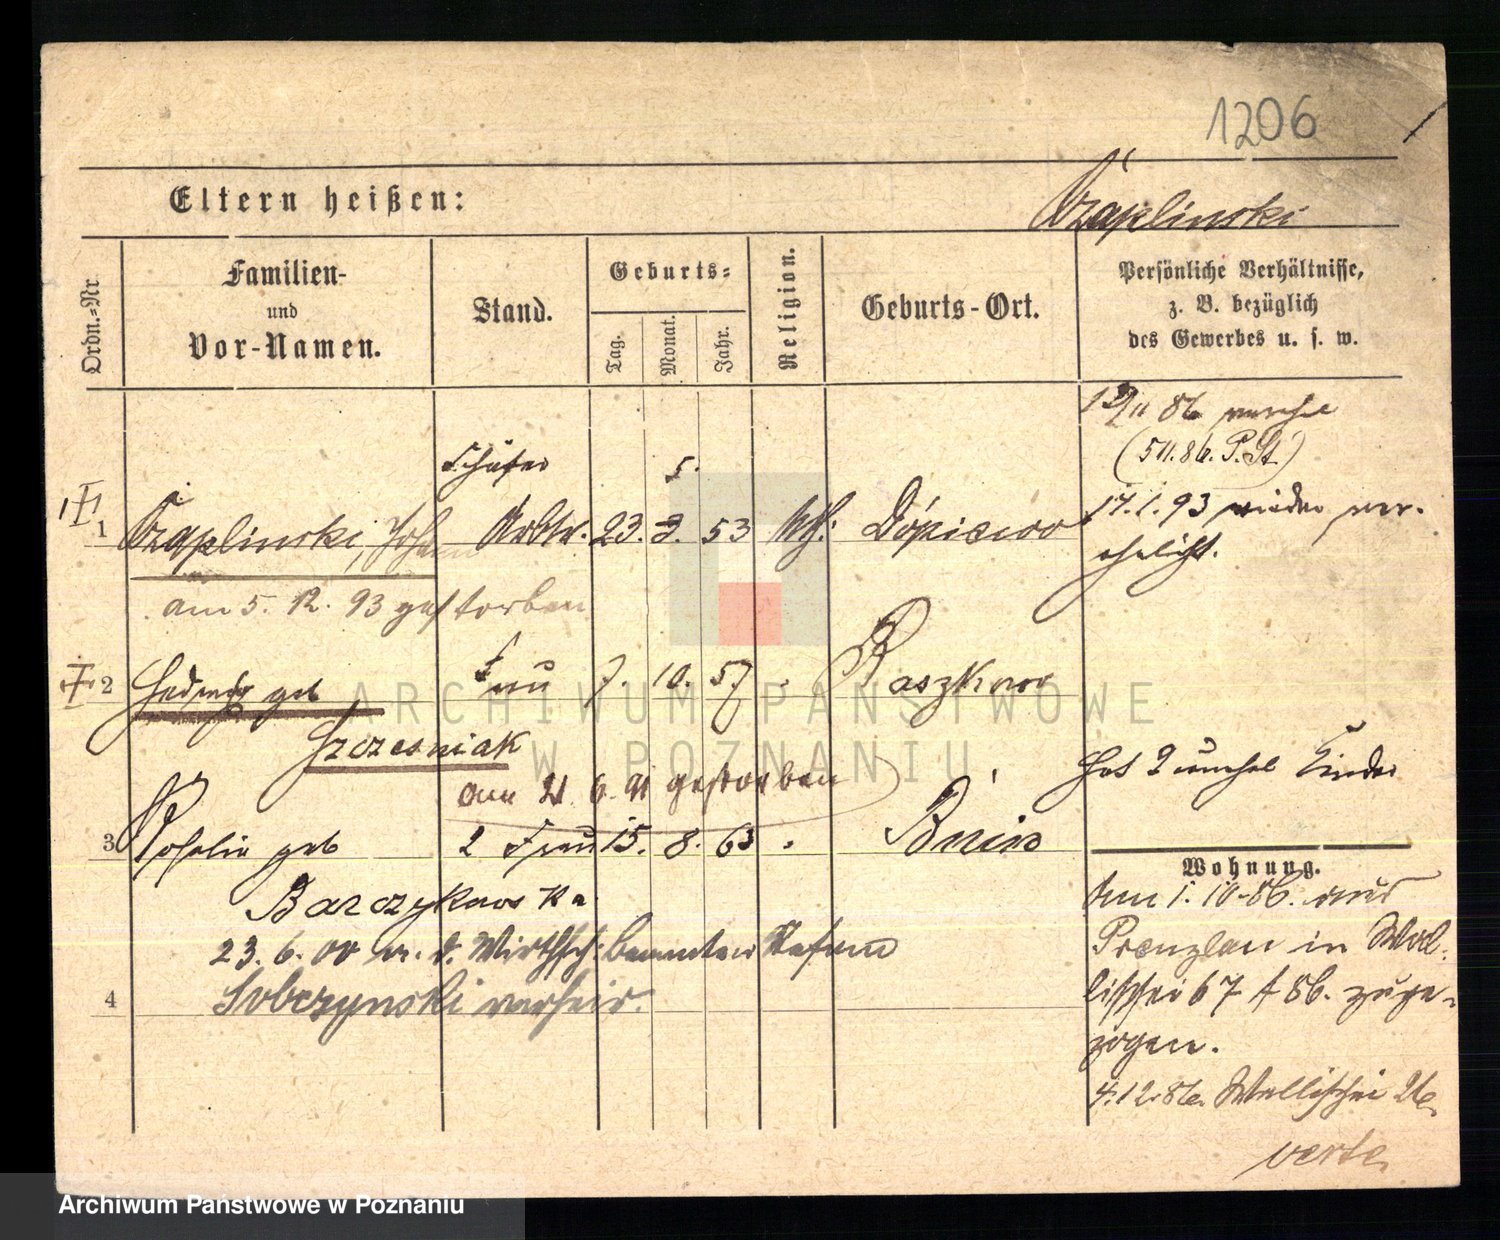 1206
Czaplinski
Eltern heißen:
Ordn.=Nr
Familien-
und
Vor-Namen.
Stand.
Geburts=
Tag.
Monat.
Jahr.
Religion.
Geburts-Ort.
Persönliche Verhältnisse,
z. B. bezüglich
des Gewerbes u. s. w.
11 86
(5 11. 86. P. St.)
Schäfer
5.
1 Czaplinski, Johann Arbtr. 23. 3. 53 kth. 
17. 1. 93 wieder ver-
ehelicht.
am 5. 12. 93 gestorben
2 Hedwig geb Frau 7. 10. 57 Paszkowo
Szczesniak
am 21. 6. 91 gestorben
Hat 2 unehel Kinder
3 Rosalie geb 2 Frau 15. 8. 63 Bnin
Barczykowska
Wohnung.
Am 1. 10. 86. aus
Prenzlau in Wal-
lischei 67 86. zuge-
zogen.
4. 12. 86. Wallischei 26
verte
23. 6. 00 m. d. Wirthsch. beamten Stefan
4 Sobczynski verheir.
ARCHIWUM PAŃSTWOWE
W POZNANIU
Archiwum Państwowe w Poznaniu